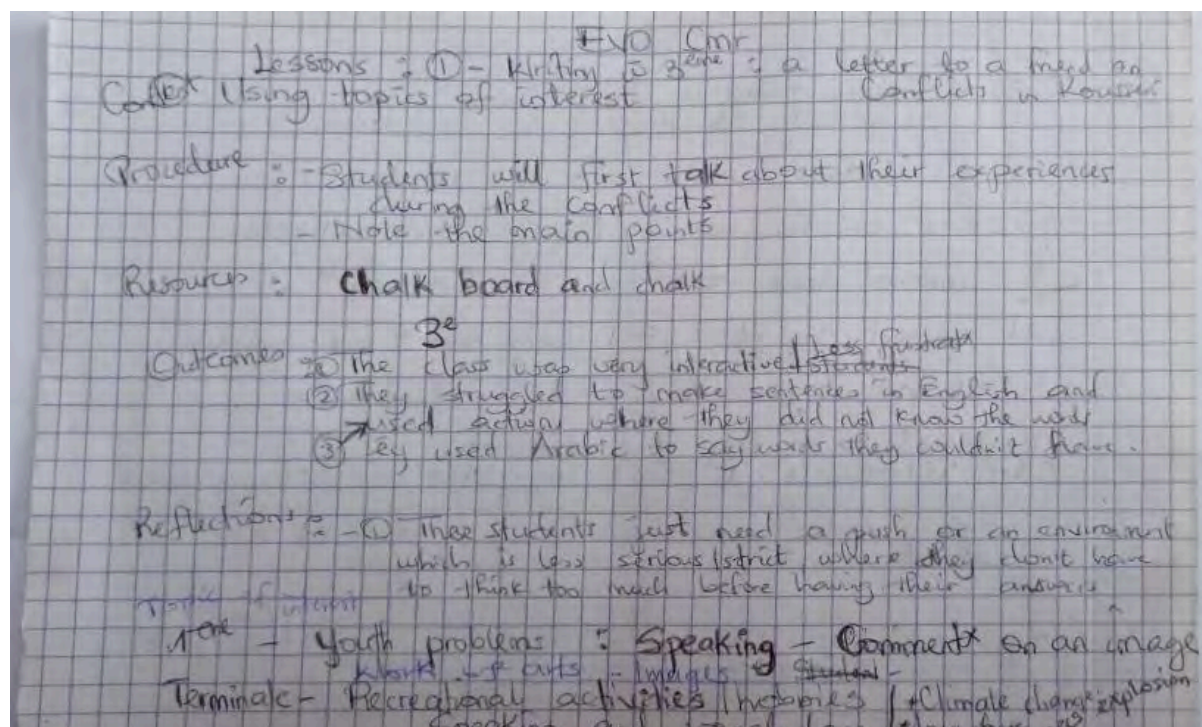 Cmr
Lessons : ① - Writing in 3ème : a letter to a friend on
Using topics of interest Conflicts in Kousseri
Procedure : - Students will first talk about their experiences
during the conflicts
- Note the main points
Resources : Chalk board and chalk
3e
Outcomes : ① The class was very interactive / Less frustrated
② They struggled to make sentences in English and
used where they did not know the words
③ used Arabic to say words they couldn't
Reflections : - ① These students just need a push or an environment
which is less serious/strict where they don't have
to think too much before having their answers
Topic of interest
1ere - Youth problems : Speaking - Comment on an image
arts - Images
Terminale - Recreational activities / + Climate change explosion